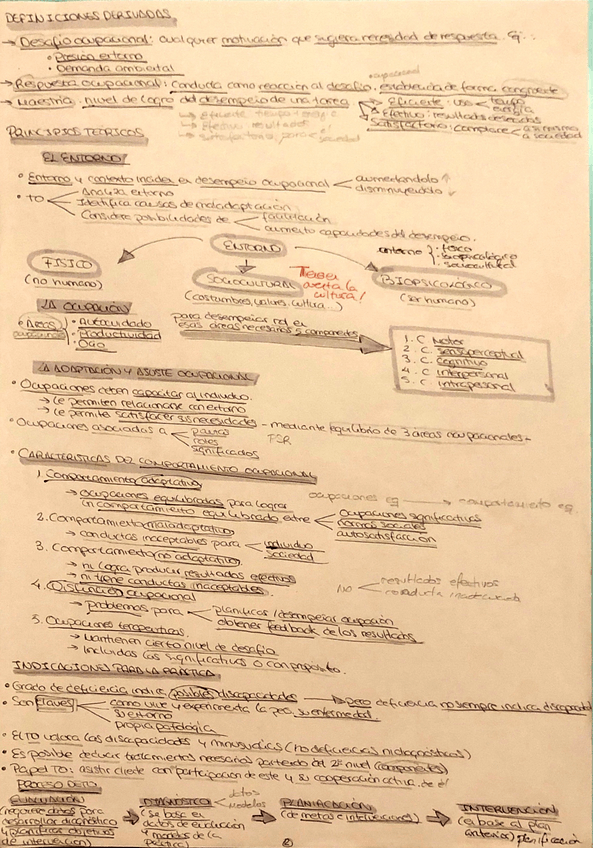 DEFINICIONES DERIVADAS
→ Desafío ocupacional: cualquier motivación que sugiera necesidad de respuesta. Ej.:
• Presión entorno
• Demanda ambiental
→ Respuesta ocupacional: Conducta como reacción al desafío, establecida de forma congruente
→ Maestría: nivel de logro del desempeño de una tarea
Eficiente: uso tiempo energía
Efectivo: resultados deseados
Satisfactorio: complace a sí mismo a sociedad
PRINCIPIOS TEÓRICOS
EL ENTORNO
• Entorno y contexto inciden en desempeño ocupacional
aumentándolo ↑
disminuyéndolo ↓
• TO
Analiza entorno
Identifica causas de maladaptación
Considera posibilidades de
facilitación
aumento capacidades del desempeño.
ENTORNO
entorno
• físico
• biopsicológico
• sociocultural
FÍSICO
(no humano)
SOCIOCULTURAL
(costumbres, valores, cultura...)
la cultura!
BIOPSICOLÓGICO
(ser humano)
LA OCUPACIÓN
• Áreas ocupacionales
• Autocuidado
• Productividad
• Ocio
para desempeñar rol en esas áreas necesarios 5 componentes
1. C. Motor
2. C. Sensoperceptual
3. C. Cognitivo
4. C. Interpersonal
5. C. Intrapersonal
LA ADAPTACIÓN Y AJUSTE OCUPACIONAL
• Ocupaciones deben capacitar al individuo.
→ le permiten relacionarse con entorno
→ le permite satisfacer sus necesidades - mediante equilibrio de 3 áreas ocupacionales -
• Ocupaciones asociadas a
pautas
roles
significados
• CARACTERÍSTICAS DEL COMPORTAMIENTO OCUPACIONAL
1. Comportamiento adaptativo
→ Ocupaciones equilibradas para lograr
un comportamiento equilibrado entre
Ocupaciones significativas
normas sociales
autosatisfacción
ocupaciones eq → comportamiento eq.
2. Comportamiento maladaptativo
→ conductas inaceptables para
individuo
sociedad
3. Comportamiento no adaptativo
→ ni logra producir resultados efectivos
ni tiene conductas inaceptables.
NO
resultados efectivos
conducta inadecuada
4. Disfunción ocupacional
→ Problemas para
planificar / desempeñar ocupación
obtener feedback de los resultados
5. Ocupaciones terapéuticas.
→ Mantienen cierto nivel de desafío
→ Incluidas las significativas o con propósito.
INDICACIONES PARA LA PRÁCTICA
• Grado de deficiencia indica posibles discapacidades → pero deficiencia no siempre indica discapacidad
• Son claves
cómo vive y experimenta la pers. su enfermedad
su entorno
propia patología
• El TO valora las discapacidades y minusvalías (no deficiencias ni diagnósticos)
• Es posible deducir tratamientos necesarios partiendo del 2º nivel (componentes)
• Papel TO: asistir cliente con participación de este y su cooperación activa.
PROCESO DE TO
EVALUACIÓN
(requiere datos para
desarrollar diagnóstico
y planificar objetivos
de intervención)
DIAGNÓSTICO
datos
modelos
(se basa en
datos de evaluación
y modelos de la
práctica)
PLANIFICACIÓN
(de metas e intervenciones)
INTERVENCIÓN
(en base al plan
anterior) planificación